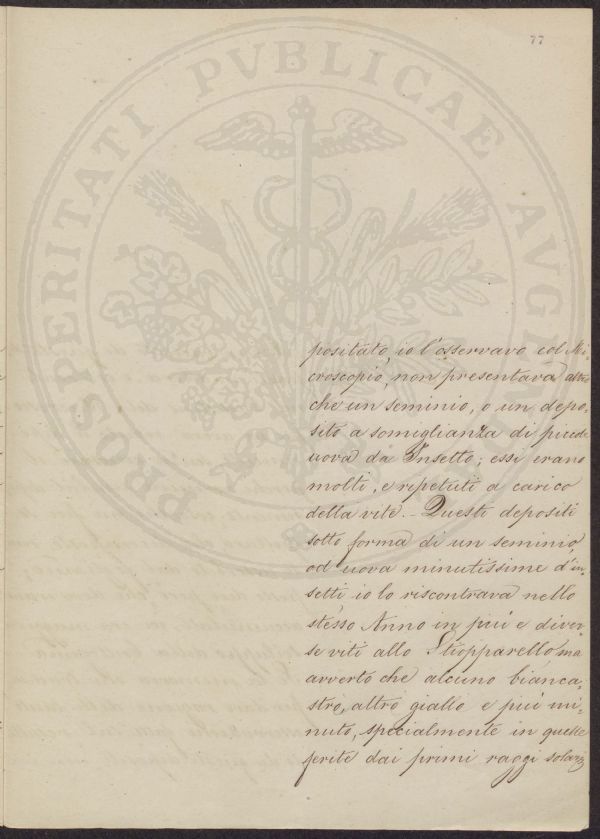 77
PROSPERITATI PVBLICAE AVGENDAE
positato, io l'osservavo col Mi-
croscopio, non presentava altro
che un seminio, o un depo-
sito a somiglianza di piccole
uova da Insetto; essi erano
molti, e ripetuti a carico
della vite. - Questi depositi
sotto forma di un seminio,
od uova minutissime d'in-
setti io lo riscontrava nello
stesso Anno in piú e diver-
se viti allo Stiopparello, ma
avverto che alcuno bianca-
stro, altro giallo e piú mi-
nuto, specialmente in quelle
ferite dai primi raggi solari